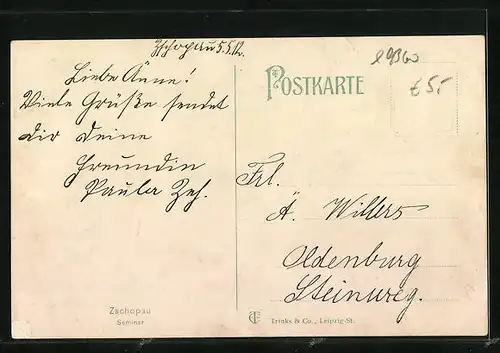 Zschopau 5.5.12.
Liebe Änne!
Viele Grüße sendet
dir deine
Freundin
Paula Zeh.
POSTKARTE
89360
€ 5,-
Frl.
Ä. Willers
Oldenburg
Steinweg.
Zschopau
Seminar
Trinks & Co., Leipzig-St.